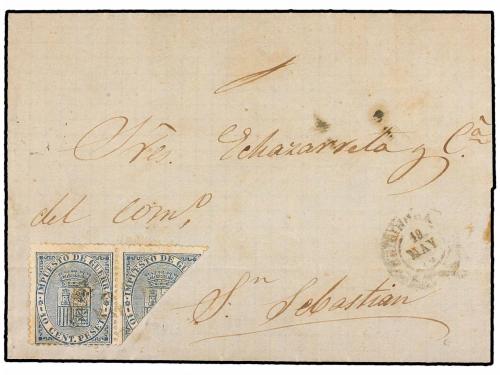 Sres. Echazarreta y Cª
del comº
Sn Sebastian
IMPUESTO DE GUERRA
10 CENT. PESETA
IMPUESTO DE G
10
19
MAY